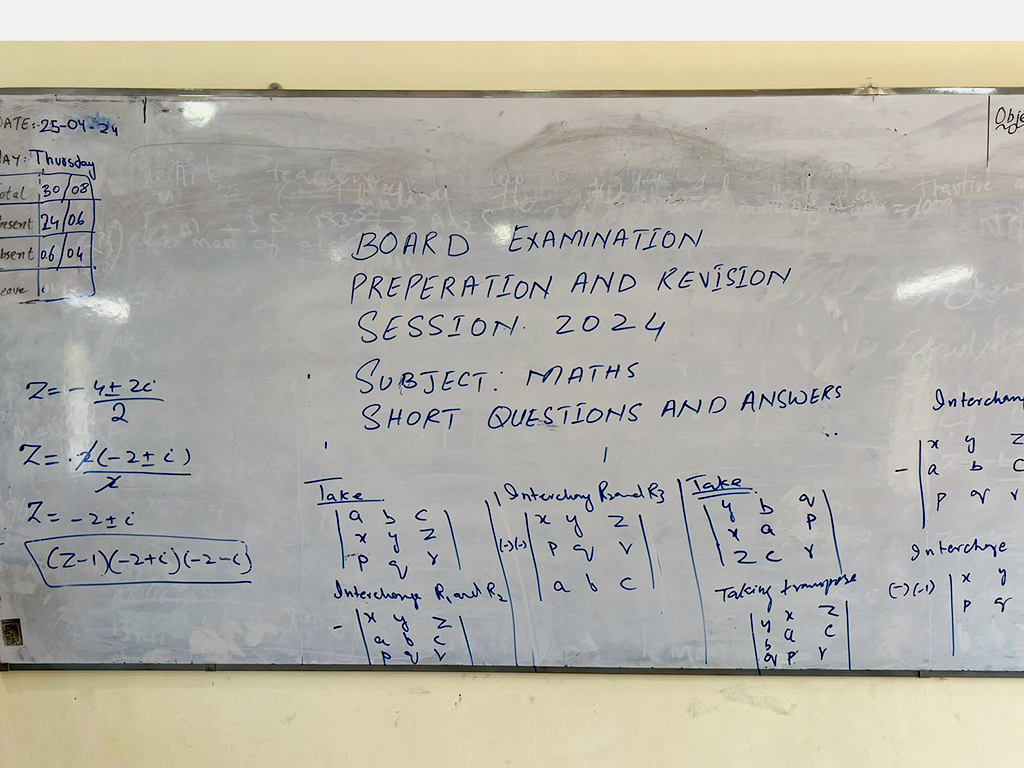 DATE:-25-04-24
DAY: Thursday
Total 30/08
Present 24/06
Absent 06/04
Leave
Obje
BOARD EXAMINATION
PREPERATION AND REVISION
SESSION. 2024
SUBJECT: MATHS
SHORT QUESTIONS AND ANSWERS
Z = - 4 ± 2i
2
Z = 2(-2 ± i)
2
Z = -2 ± i
(Z-1)(-2+i)(-2-i)
Take
a b c
x y z
p q r
Interchange R1 and R2
- x y z
a b c
p q r
Interchang R2 and R3
(-)(-) x y z
p q r
a b c
Take
y b q
x a p
z c r
Taking transpose
y x z
b a c
q p r
Interchan
- x y z
a b c
p q r
Interchange
(-)(-1) x y
p q